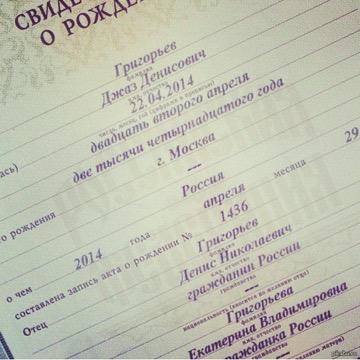 СВИДЕ
О РОЖДЕН
Григорьев
фамилия
Джаз Денисович
имя, отчество
22.04.2014
число, месяц, год (цифрами и прописью)
двадцать второго апреля
две тысячи четырнадцатого года
лась)
г. Москва
---
о рождения
Россия
о чем 2014 года апреля месяца 29
составлена запись акта о рождении № 1436
Отец
Григорьев
фамилия
Денис Николаевич
имя, отчество
гражданин России
гражданство
---
национальность (вносится по желанию отца)
Григорьева
фамилия
Екатерина Владимировна
имя, отчество
гражданка России
гражданство